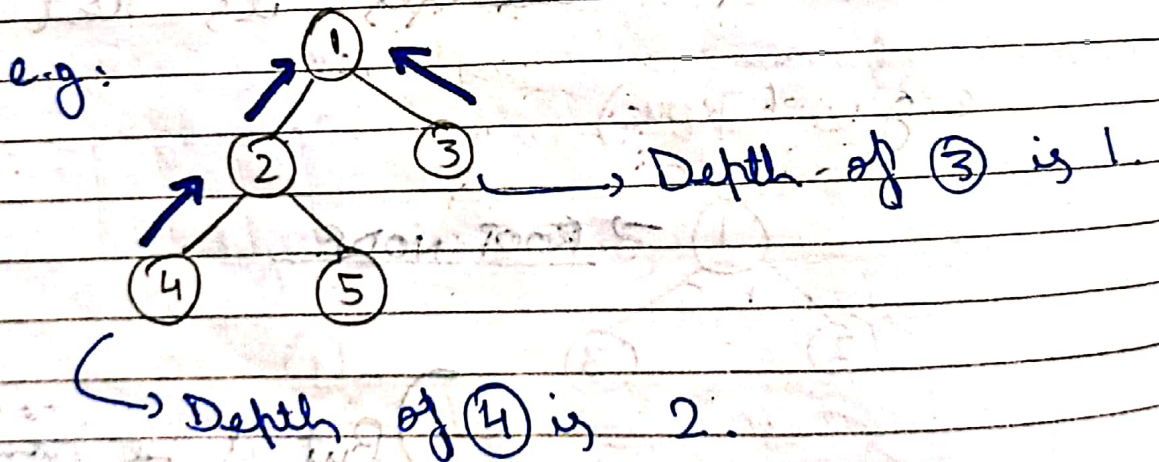 e.g:
1
2 3 → Depth of ③ is 1.
4 5
→ Depth of ④ is 2.